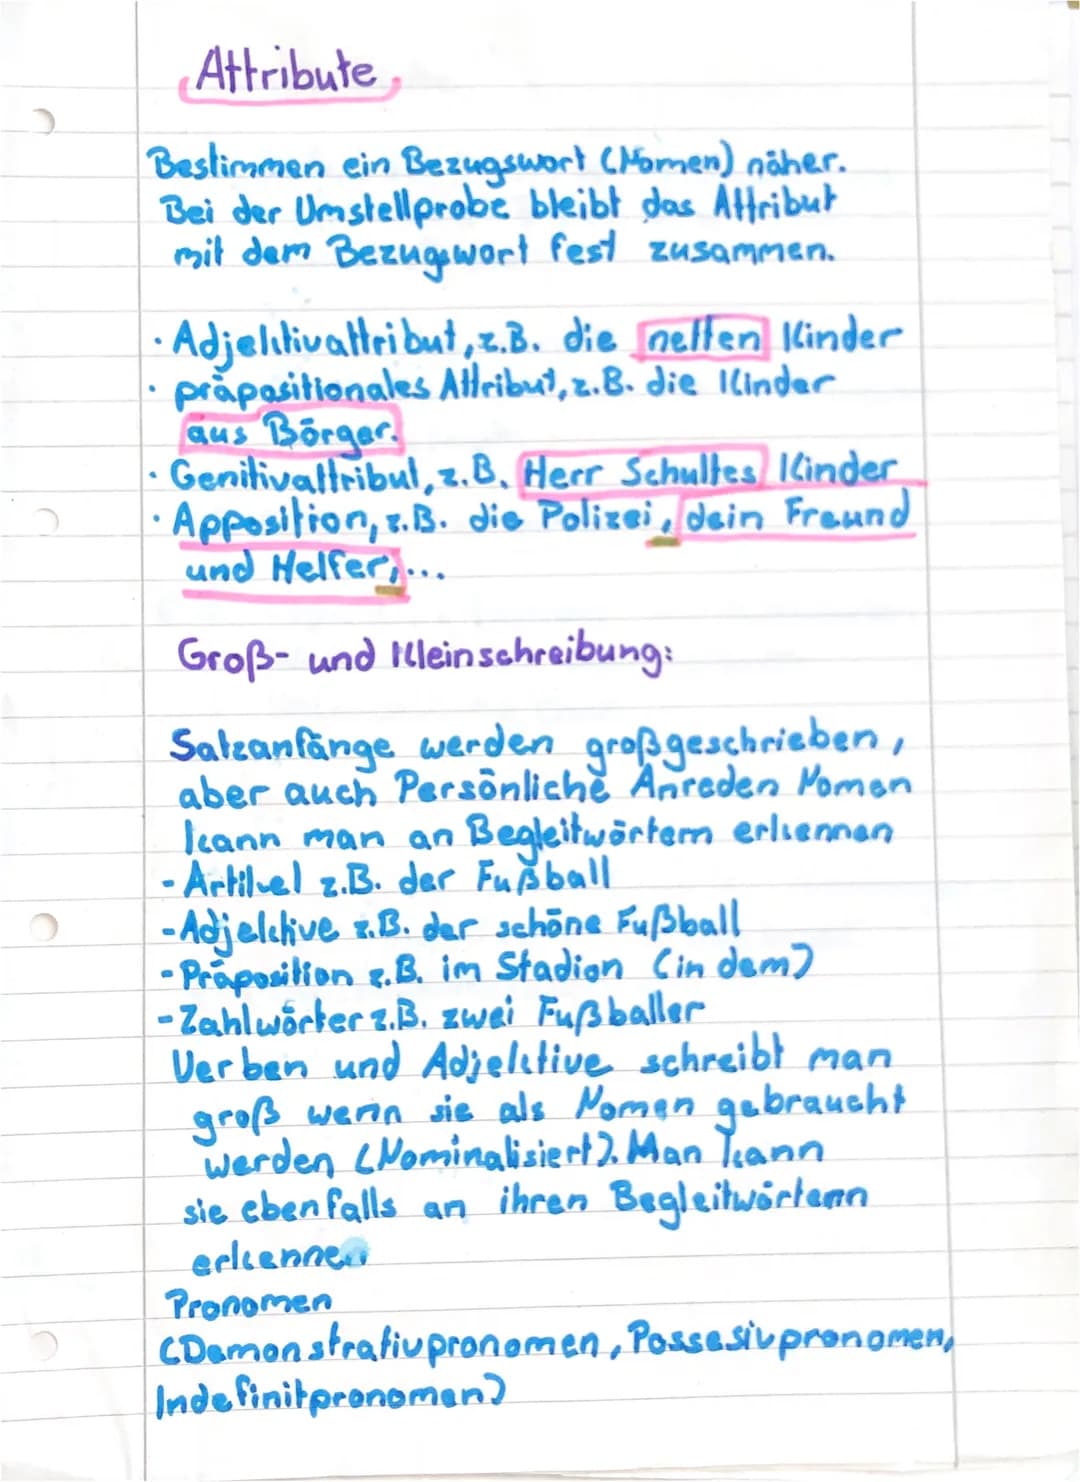 Attribute
Bestimmen ein Bezugswort (Nomen) näher.
Bei der Umstellprobe bleibt das Attribut
mit dem Bezugswort fest zusammen.
· Adjektivattribut, z.B. die netten Kinder
· präpositionales Attribut, z.B. die Kinder
aus Börger.
· Genitivattribut, z.B. Herr Schultes Kinder
· Apposition, z.B. die Polizei, dein Freund
und Helfer,...
Groß- und Kleinschreibung:
Satzanfänge werden großgeschrieben,
aber auch Persönliche Anreden Nomen
kann man an Begleitwörtern erkennen
- Artikel z.B. der Fußball
- Adjektive z.B. der schöne Fußball
- Präposition z.B. im Stadion (in dem)
- Zahlwörter z.B. zwei Fußballer
Verben und Adjektive schreibt man
groß wenn sie als Nomen gebraucht
werden (Nominalisiert). Man kann
sie ebenfalls an ihren Begleitwörtern
erkennen
Pronomen
(Demonstrativpronomen, Possesivpronomen,
Indefinitpronomen)